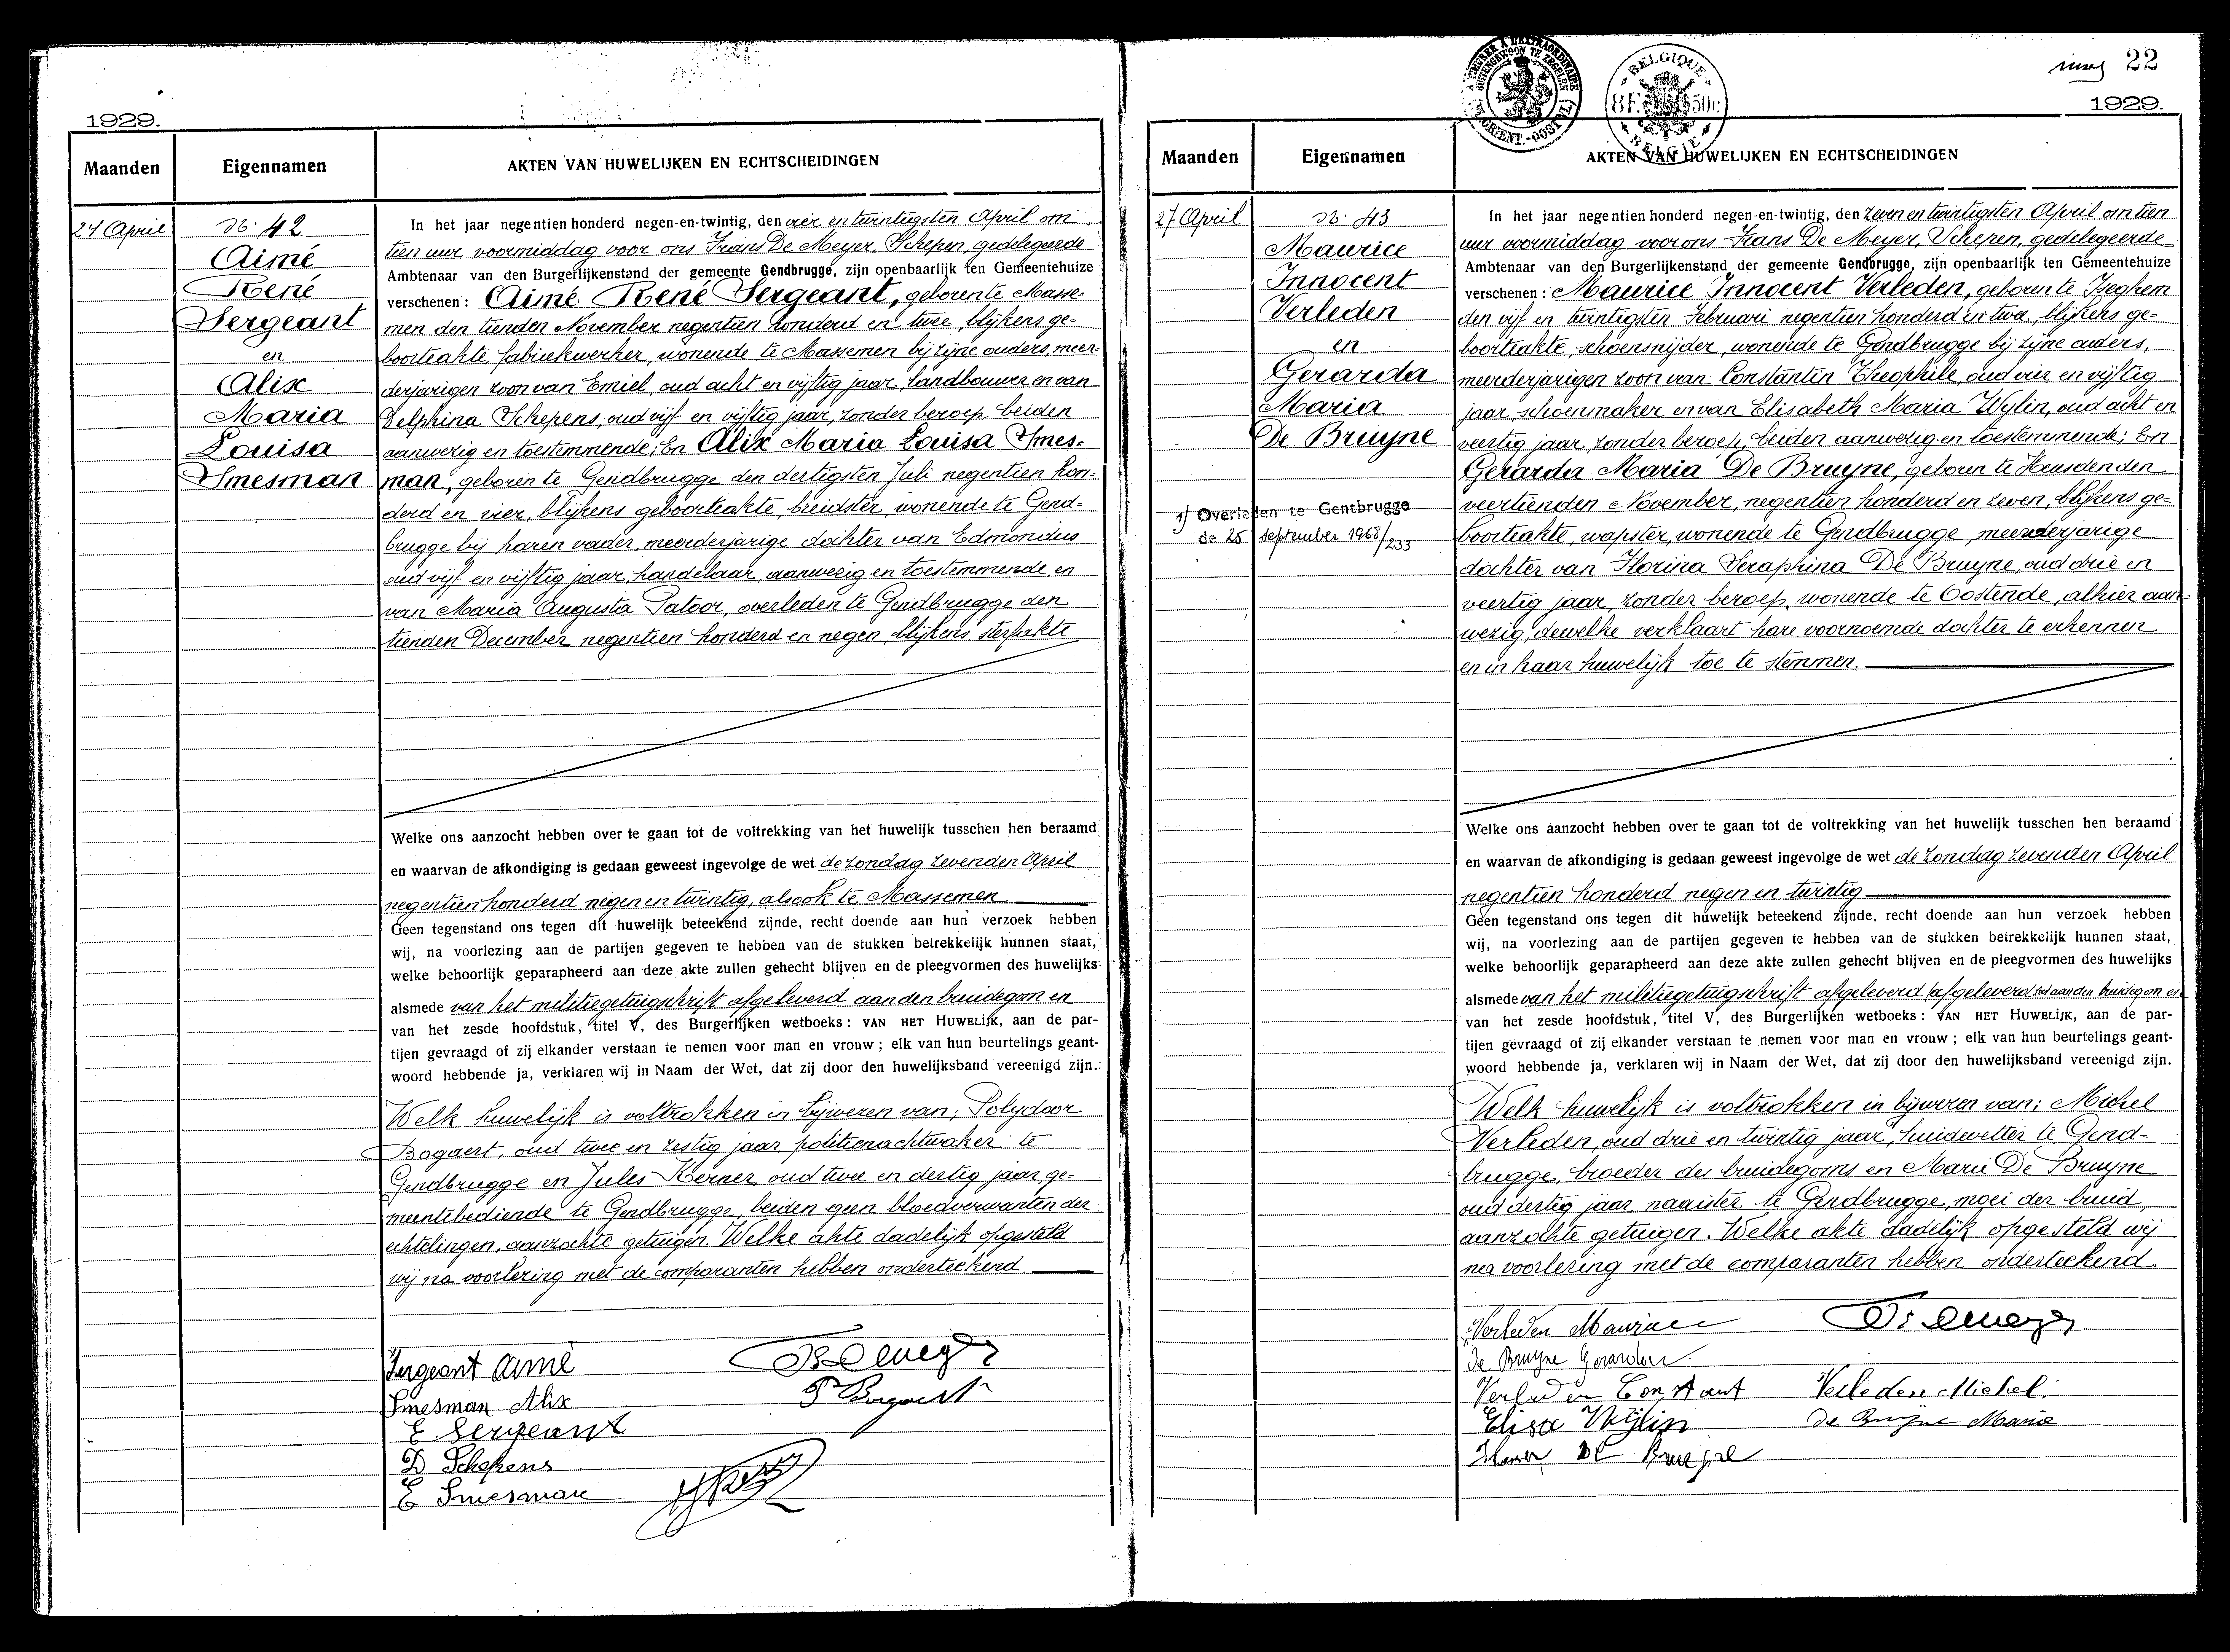 1929.
Maanden
Eigennamen
AKTEN VAN HUWELIJKEN EN ECHTSCHEIDINGEN
24 April
N: 42
Aimé
René
Sergeant
en
Alix
Maria
Louisa
Smesman
In het jaar negentien honderd negen-en-twintig, den vier en twintigsten April om
tien uur voormiddag voor ons Frans De Meyer, Schepen, gedelegeerde
Ambtenaar van den Burgerlijkenstand der gemeente Gendbrugge, zijn openbaarlijk ten Gemeentehuize
verschenen: Aimé René Sergeant, geboren te Masse-
men den tienden November negentien honderd en twee, blijkens ge-
boorteakte, fabriekwerker, wonende te Massemen bij zijne ouders, meer-
derjarigen zoon van Emiel, oud acht en vijftig jaar, landbouwer en van
Delphina Schepens, oud vijf en vijftig jaar, zonder beroep, beiden
aanwezig en toestemmende; En Alix Maria Louisa Smes-
man, geboren te Gendbrugge den dertigsten Juli negentien hon-
derd en vier, blijkens geboorteakte, breidster, wonende te Gend-
brugge bij haren vader, meerderjarige dochter van Edmondus
oud vijf en vijftig jaar, handelaar, aanwezig en toestemmende, en
van Maria Augusta Patoor, overleden te Gendbrugge den
tienden December negentien honderd en negen, blijkens sterfakte
Welke ons aanzocht hebben over te gaan tot de voltrekking van het huwelijk tusschen hen beraamd
en waarvan de afkondiging is gedaan geweest ingevolge de wet de zondag zevenden April
negentien honderd negen en twintig, alsook te Massemen
Geen tegenstand ons tegen dit huwelijk beteekend zijnde, recht doende aan hun verzoek hebben
wij, na voorlezing aan de partijen gegeven te hebben van de stukken betrekkelijk hunnen staat,
welke behoorlijk geparapheerd aan deze akte zullen gehecht blijven en de pleegvormen des huwelijks
alsmede van het militiegetuigschrift afgeleverd aan den bruidegom en
van het zesde hoofdstuk, titel V, des Burgerlijken wetboeks: VAN HET HUWELIJK, aan de par-
tijen gevraagd of zij elkander verstaan te nemen voor man en vrouw; elk van hun beurtelings geant-
woord hebbende ja, verklaren wij in Naam der Wet, dat zij door den huwelijksband vereenigd zijn.
Welk huwelijk is voltrokken in bijwezen van; Polydoor
Bogaert, oud twee en zestig jaar, politienachtwaker te
Gendbrugge en Jules Kerner, oud twee en dertig jaar, ge-
meentebediende te Gendbrugge, beiden geen bloedverwanten der
echtelingen, aanzochte getuigen. Welke akte dadelijk opgesteld
wij na voorlezing met de comparanten hebben onderteekend.
Sergeant Aimé
Smesman Alix
P Bogaert
E Sergeant
D Schepens
E Smesman
22
1929.
A TIMBRER A L'EXTRAORDINAIRE
BUITENGEWOON TE ZEGELEN
BELGIQUE
8F 50c
BELGIE
Maanden
Eigennamen
AKTEN VAN HUWELIJKEN EN ECHTSCHEIDINGEN
27 April
N: 43
Maurice
Innocent
Verleden
en
Gerarda
Maria
De Bruyne
1) Overleden te Gentbrugge
de 25 september 1968/233
In het jaar negentien honderd negen-en-twintig, den zeven en twintigsten April om tien
uur voormiddag voor ons Frans De Meyer, Schepen, gedelegeerde
Ambtenaar van den Burgerlijkenstand der gemeente Gendbrugge, zijn openbaarlijk ten Gemeentehuize
verschenen: Maurice Innocent Verleden, geboren te Iseghem
den vijf en twintigsten Februari negentien honderd en twee, blijkens ge-
boorteakte, schoensnijder, wonende te Gendbrugge bij zijne ouders,
meerderjarigen zoon van Constantin Theophile, oud vier en vijftig
jaar, schoenmaker en van Elisabeth Maria Wylin, oud acht en
veertig jaar, zonder beroep, beiden aanwezig en toestemmende; En
Gerarda Maria De Bruyne, geboren te Heusden den
veertienden November, negentien honderd en zeven, blijkens ge-
boorteakte, wapster, wonende te Gendbrugge, meerderjarige
dochter van Florina Seraphina De Bruyne, oud drie en
veertig jaar, zonder beroep, wonende te Oostende, alhier aan-
wezig, dewelke verklaart hare voornoemde dochter te erkennen
en in haar huwelijk toe te stemmen.
Welke ons aanzocht hebben over te gaan tot de voltrekking van het huwelijk tusschen hen beraamd
en waarvan de afkondiging is gedaan geweest ingevolge de wet de zondag zevenden April
negentien honderd negen en twintig
Geen tegenstand ons tegen dit huwelijk beteekend zijnde, recht doende aan hun verzoek hebben
wij, na voorlezing aan de partijen gegeven te hebben van de stukken betrekkelijk hunnen staat,
welke behoorlijk geparapheerd aan deze akte zullen gehecht blijven en de pleegvormen des huwelijks
alsmede van het militiegetuigschrift afgeleverd (afgeleverd aan den bruidegom en
van het zesde hoofdstuk, titel V, des Burgerlijken wetboeks: VAN HET HUWELIJK, aan de par-
tijen gevraagd of zij elkander verstaan te nemen voor man en vrouw; elk van hun beurtelings geant-
woord hebbende ja, verklaren wij in Naam der Wet, dat zij door den huwelijksband vereenigd zijn.
Welk huwelijk is voltrokken in bijwezen van; Michel
Verleden, oud drie en twintig jaar, huidevetter te Gend-
brugge, broeder des bruidegoms en Marie De Bruyne
oud dertig jaar, naaister te Gendbrugge, moei der bruid,
aanzochte getuigen. Welke akte dadelijk opgesteld wij
na voorlezing met de comparanten hebben onderteekend.
Verleden Maurice
De Bruyne Gerarda
Verleden Constant
Verleden Michel.
Elisa Wylin
De Bruyne Maria